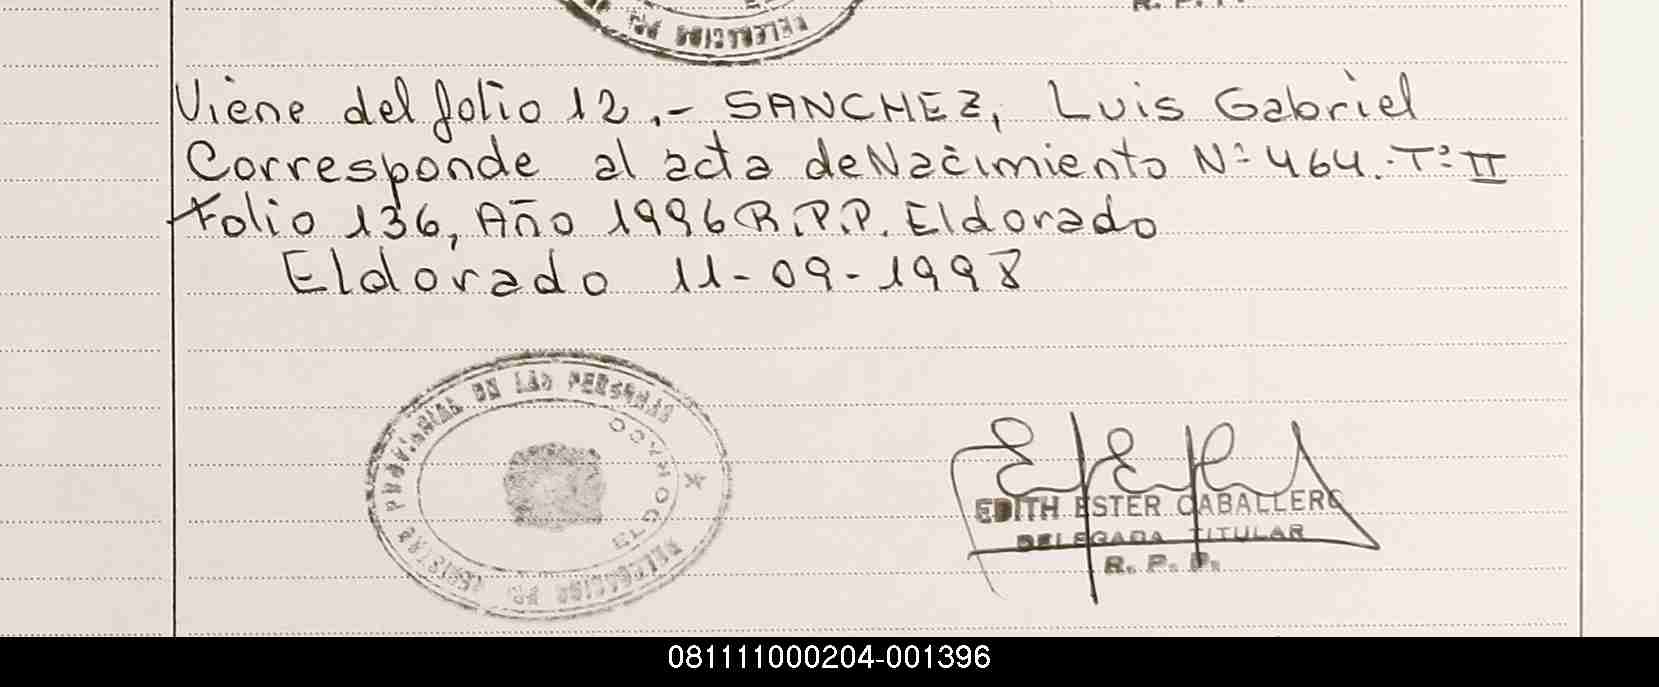 R. P. P.
Viene del folio 12.- SANCHEZ, Luis Gabriel
Corresponde al acta de Nacimiento Nº 464. Tº II
Folio 136, Año 1996 R.P.P. Eldorado
Eldorado 11-09-1998
REGISTRO PROVINCIAL DE LAS PERSONAS
ELDORADO
DELEGACION
EDITH ESTER CABALLERO
DELEGADA TITULAR
R. P. P.
081111000204-001396